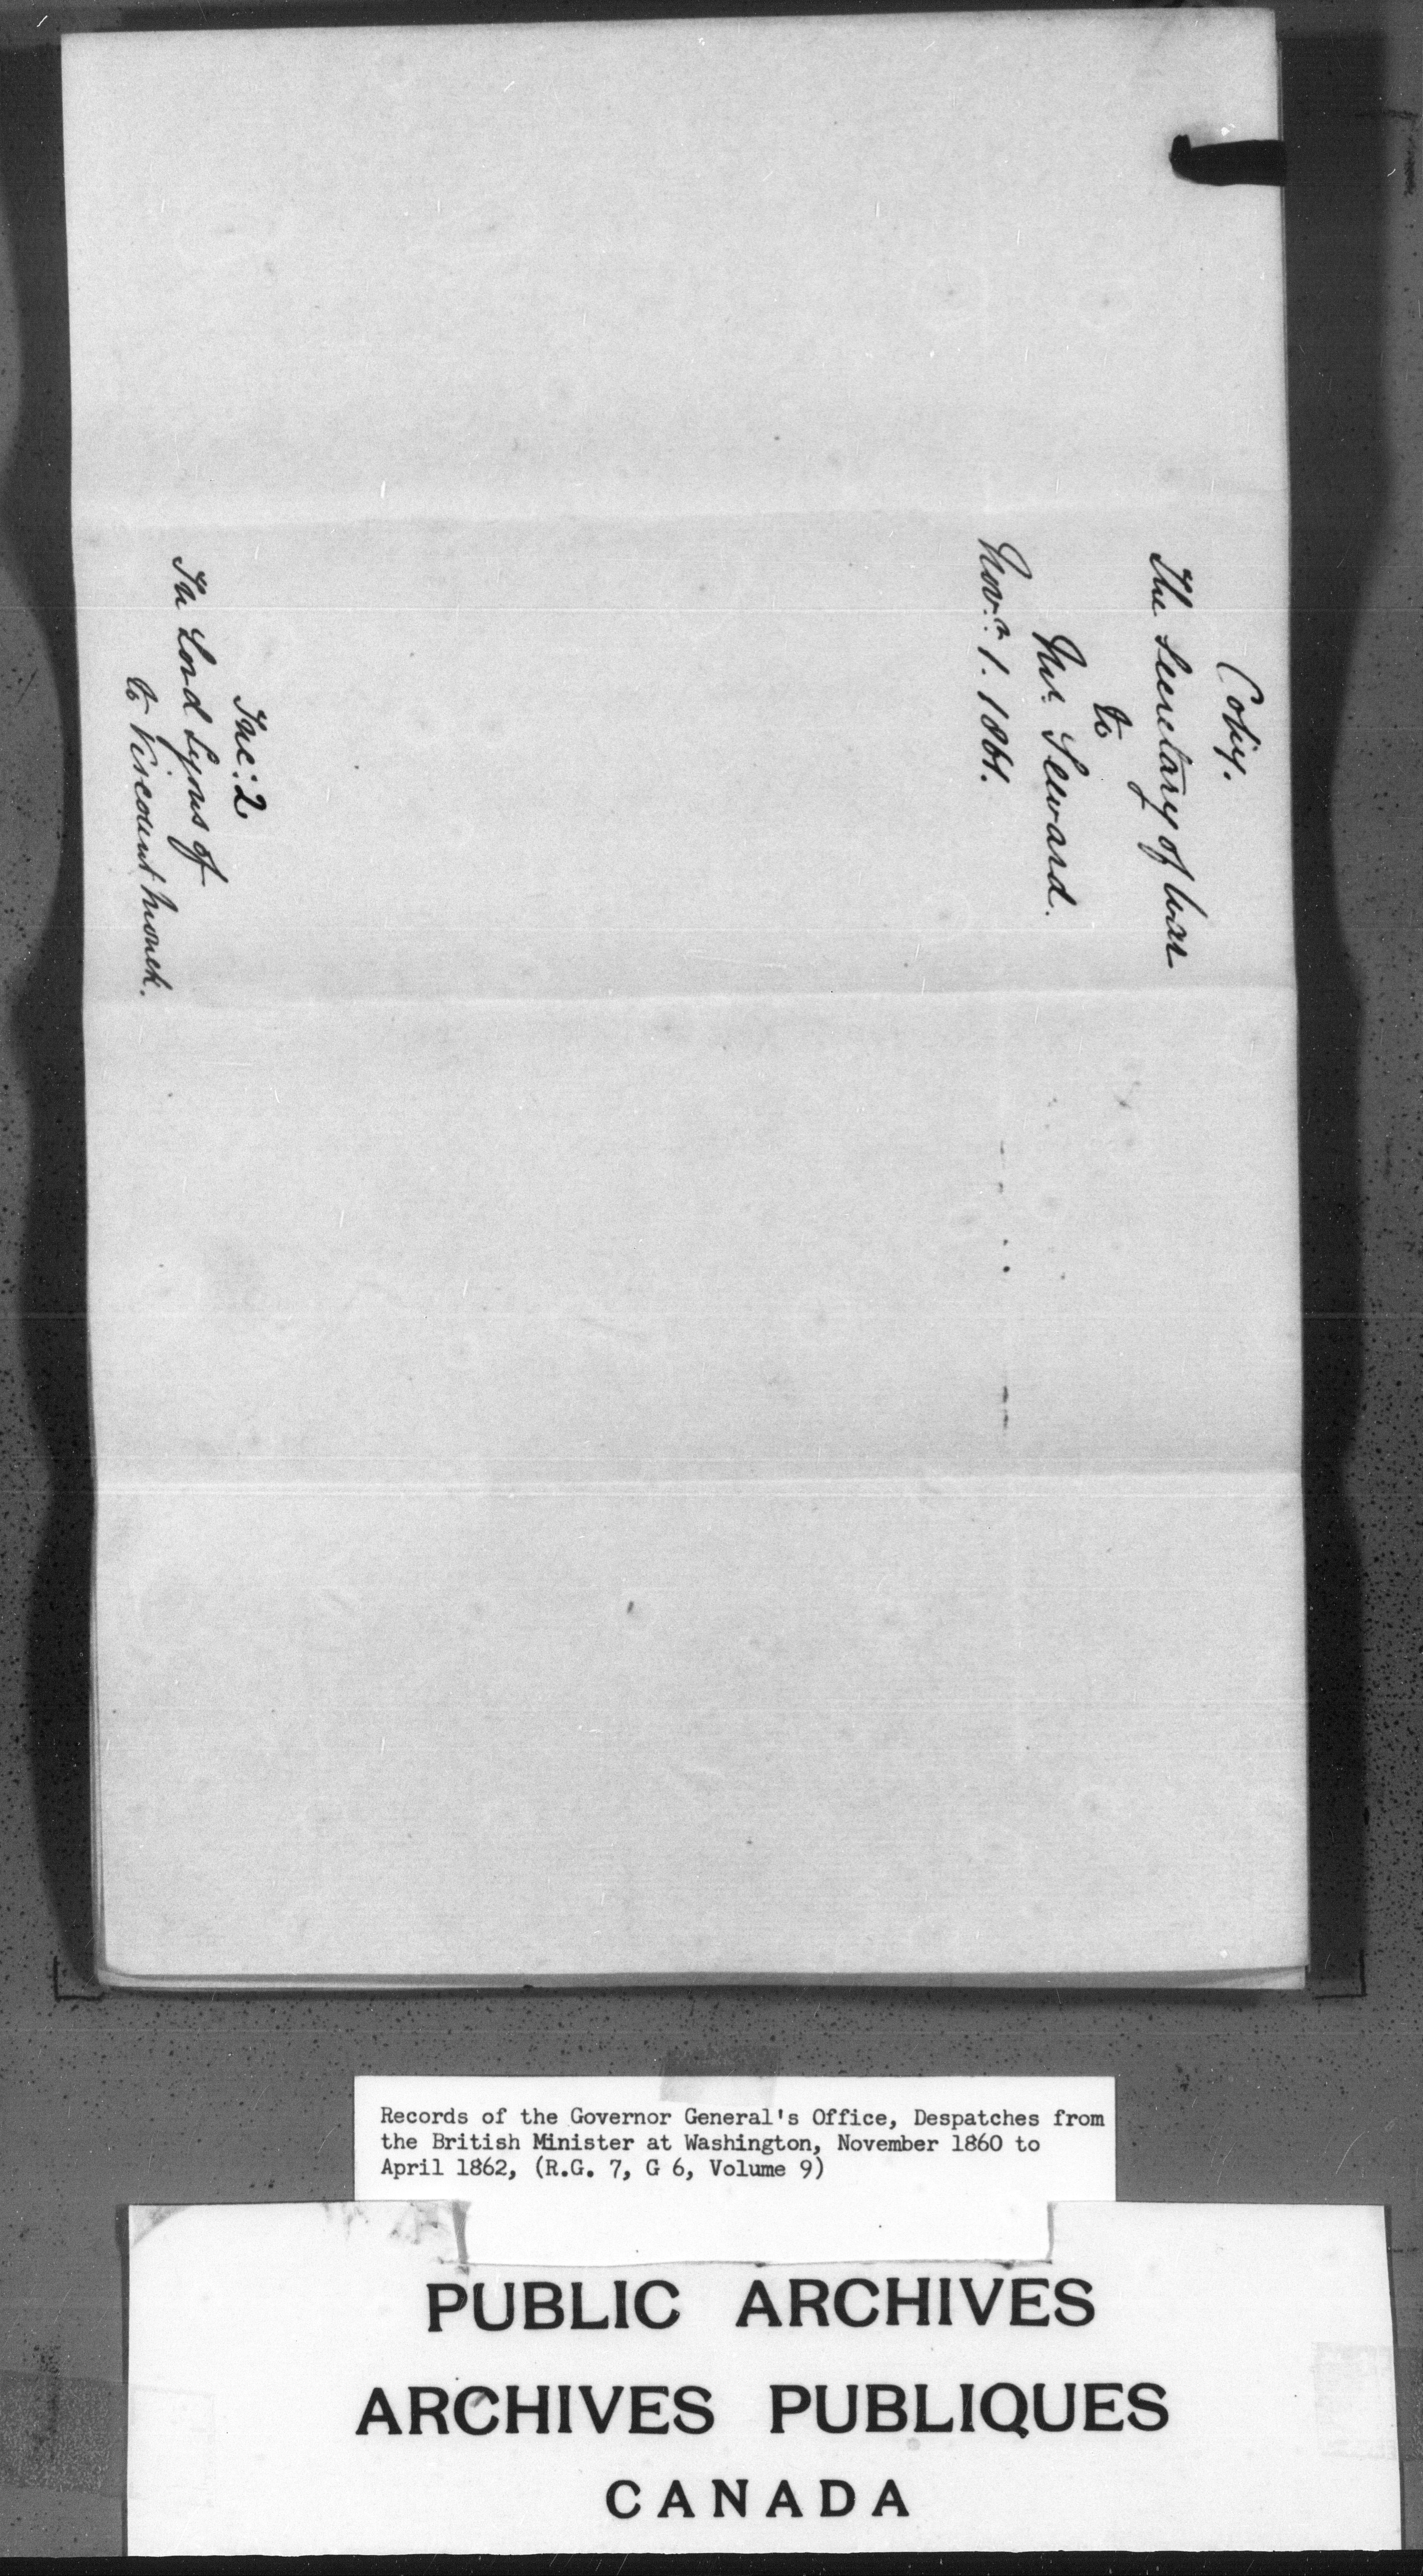 Copy.
The Secretary of War
to
Mr. Seward.
Novr. 1. 1861.
Inc: 2
In Lord Lyons of
to Viscount Monck.
Records of the Governor General's Office, Despatches from
the British Minister at Washington, November 1860 to
April 1862, (R.G. 7, G 6, Volume 9)
PUBLIC ARCHIVES
ARCHIVES PUBLIQUES
CANADA